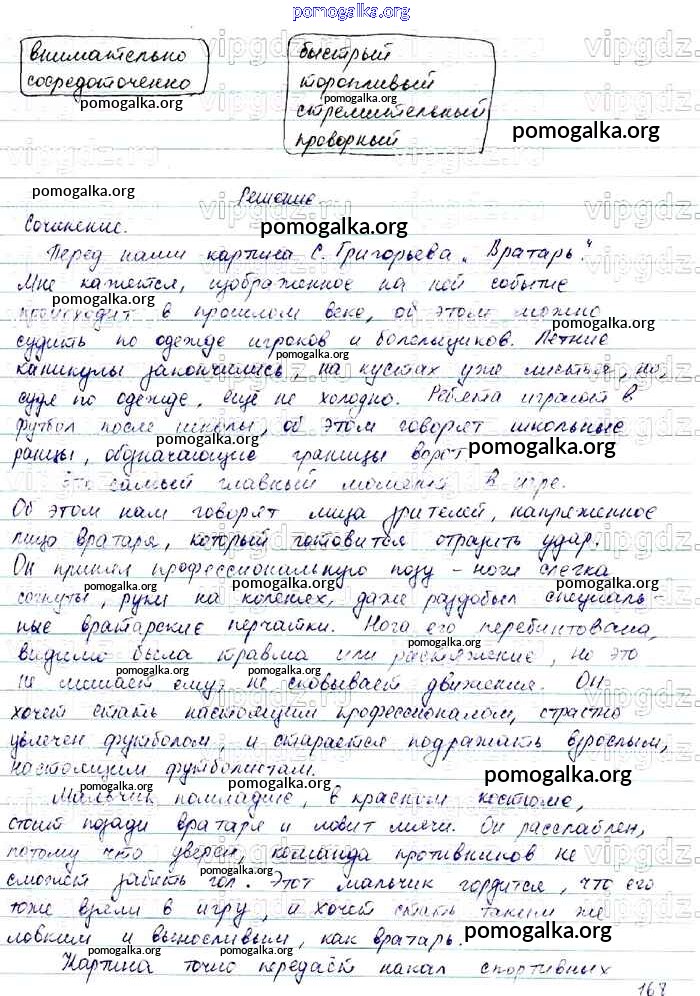 pomogalka.org
внимательно
сосредоточенно
быстрый
торопливый
стремительный
проворный
Решение
Сочинение.
Перед нами картина С. Григорьева „Вратарь".
Мне кажется, изображенное на ней событие
происходит в прошлом веке, об этом можно
судить по одежде игроков и болельщиков. Летние
каникулы закончились, на кустах уже листья, но,
судя по одежде, ещё не холодно. Ребята играют в
футбол после школы, об этом говорят школьные
ранцы, обозначающие границы ворот.
Это самый главный момент в игре.
Об этом нам говорят лица зрителей, напряженное
лицо вратаря, который готовится отразить удар.
Он принял профессиональную позу – ноги слегка
согнуты, руки на коленях, даже раздобыл специаль-
ные вратарские перчатки. Нога его перебинтована,
видимо была травма или растяжение, но это
не мешает ему, не сковывает движения. Он
хочет стать настоящим профессионалом, страстно
увлечен футболом, и старается подражать взрослым,
настоящим футболистам.
Мальчик помладше, в красном костюме,
стоит позади вратаря и ловит мячи. Он расслаблен,
потому что уверен, команда противников не
сможет забить гол. Этот мальчик гордится, что его
тоже взяли в игру, и хочет стать таким же
ловким и выносливым, как вратарь.
Картина точно передаёт накал спортивных
168